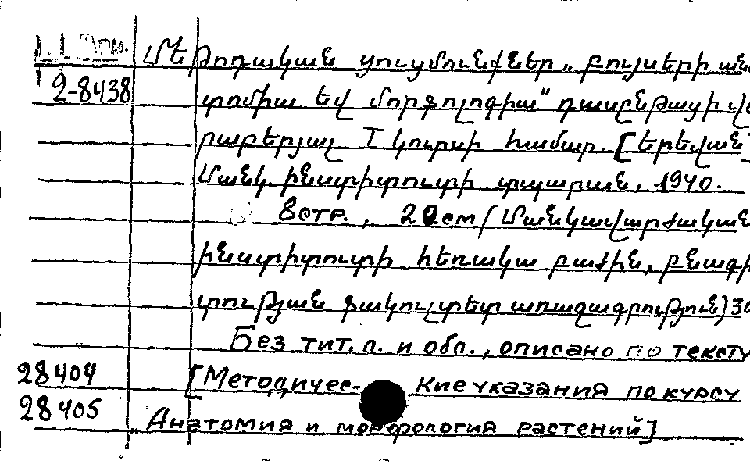 Մեթոդական ցուցմունքներ „Բույսերի ան
2-8438 տոմիա եվ մորֆոլոգիա" դասընթացի վե
րաբերյալ I կուրսի համար. [Երեվան
Մանկ ինստիտուտի տպարան, 1940.
8стр., 20см (Մանկավարժական
ինստիտուտի հեռակա բաժին, բնագի
տության ֆակուլտետ առաջադրություն)
Без тит. л. и обл., описано по тексту
28404 [Методичес- кие указания по курсу
28405 Анатомия и морфология растений]